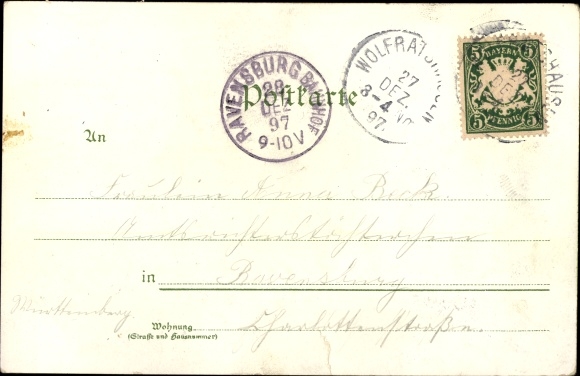 WOLFRATSHAUSEN
27
DEZ.
3-4 NO
97.
5 5
BAYERN
5 PFENNIG 5
27
DEZ
RAVENSBURG BAHNHOF
28
DEZ
97
9-10V
Postkarte
An
Fräulein Anna Beck.
Amtsrichterstöchterchen
in Ravensburg
Württemberg.
Wohnung Charlottenstraße.
(Straße und Hausnummer)